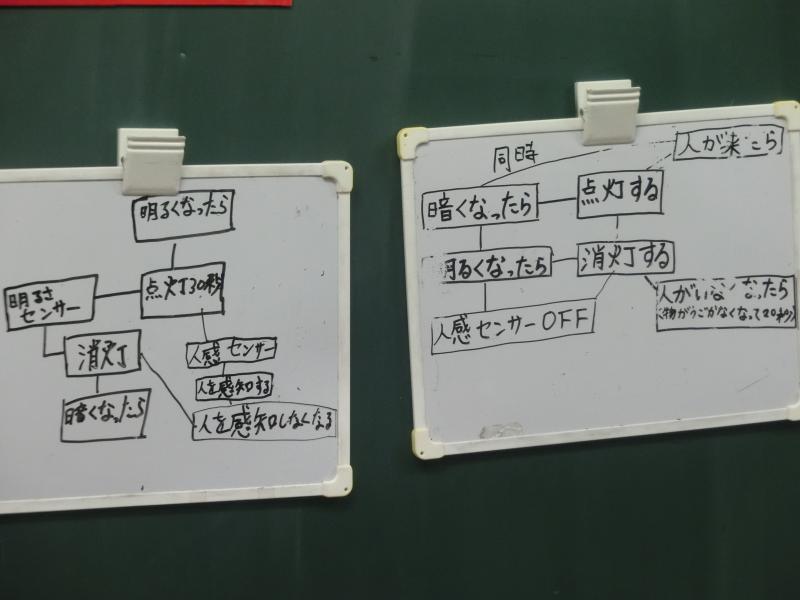 明るくなったら
明るさ
センサー
点灯30秒
消灯
人感センサー
人を感知する
暗くなったら
人を感知しなくなる
同時
人が来たら
暗くなったら
点灯する
明るくなったら
消灯する
人がいなくなったら
(物がうごかなくなって20秒)
人感センサーOFF